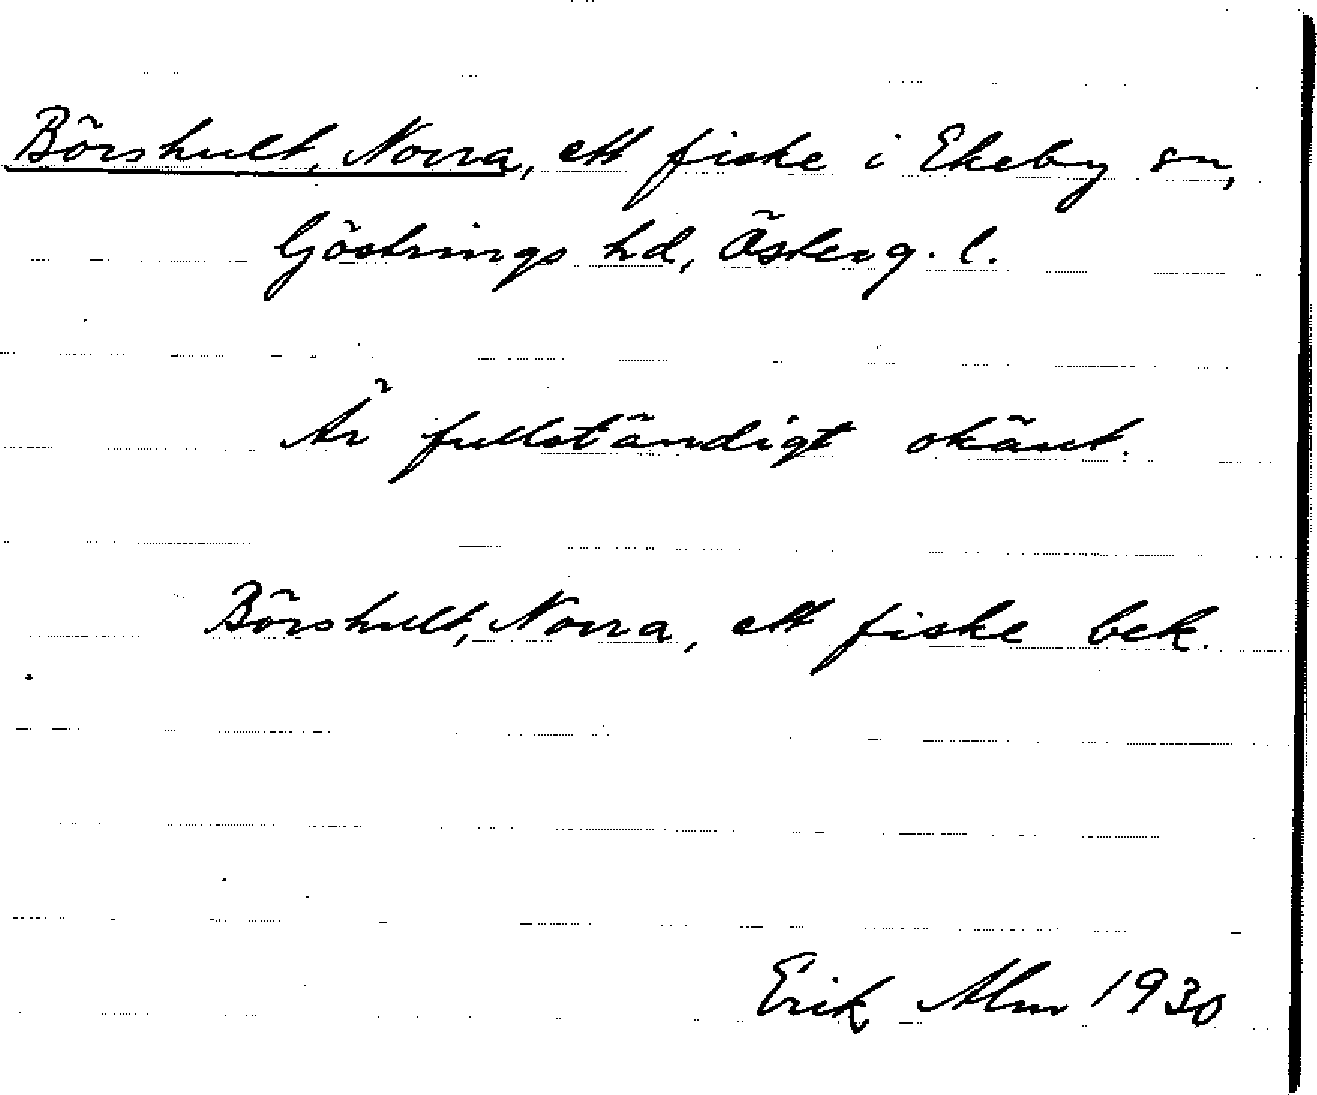 Börshult, Norra, ett fiske i Ekeby sn,
Göstrings hd, Österg. l.
Är fullständigt okänt.
Börshult, Norra, ett fiske bek.
Erik Alm 1930